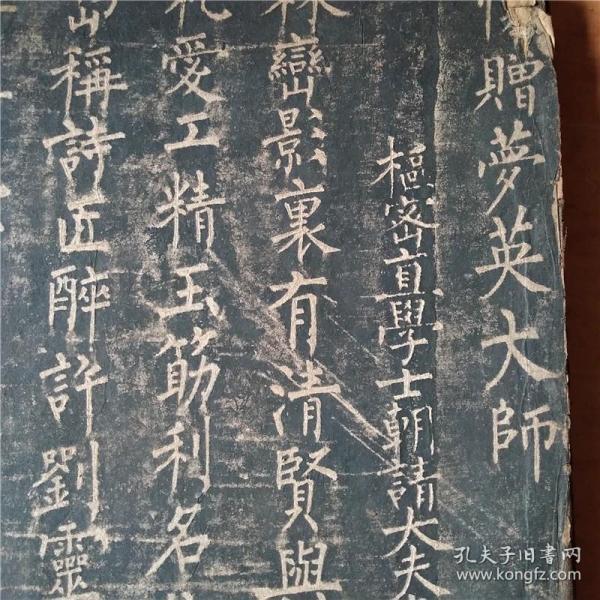 贈夢英大師
樞密直學士朝請大夫
巒影裏有清賢與
愛工精玉筯利名
稱詩匠醉許劉靈
孔夫子旧书网
www.kongfz.com